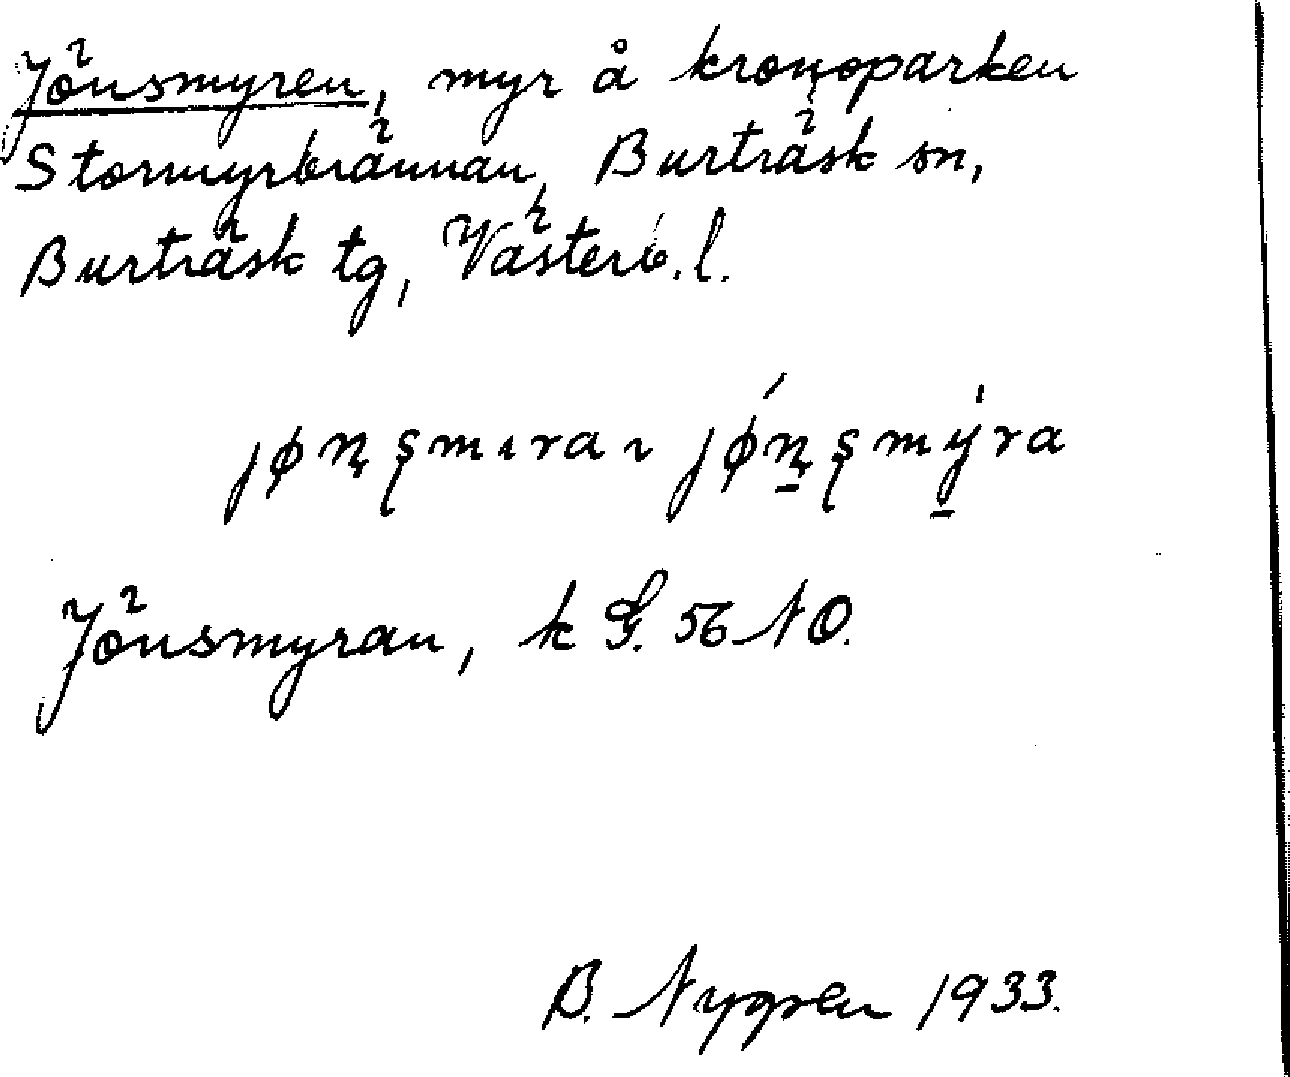 Jönsmyren, myr å kronoparken
Stormyrbrännan, Burträsk sn,
Burträsk tg, Västerb. l.
jøn̨șmıra ı jǿn̨șmýra
Jönsmyran, k G. 56 NO.
B. Nygren 1933.